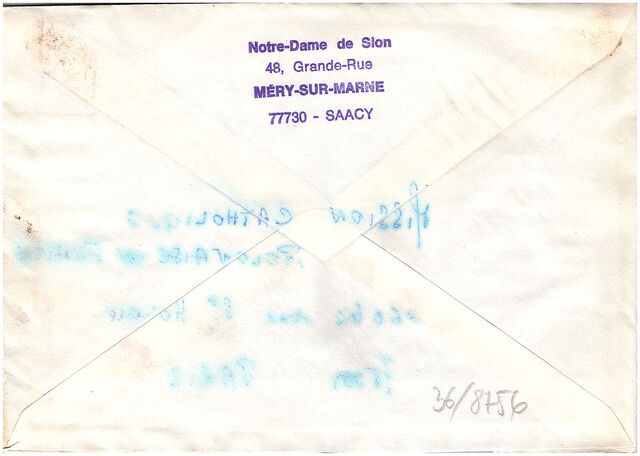 Notre-Dame de Sion
48, Grande-Rue
MÉRY-SUR-MARNE
77730 - SAACY
MISSION CATHOLIQUE
POLONAISE en FRANCE
263 bis rue St Honoré
PARIS
36/8756